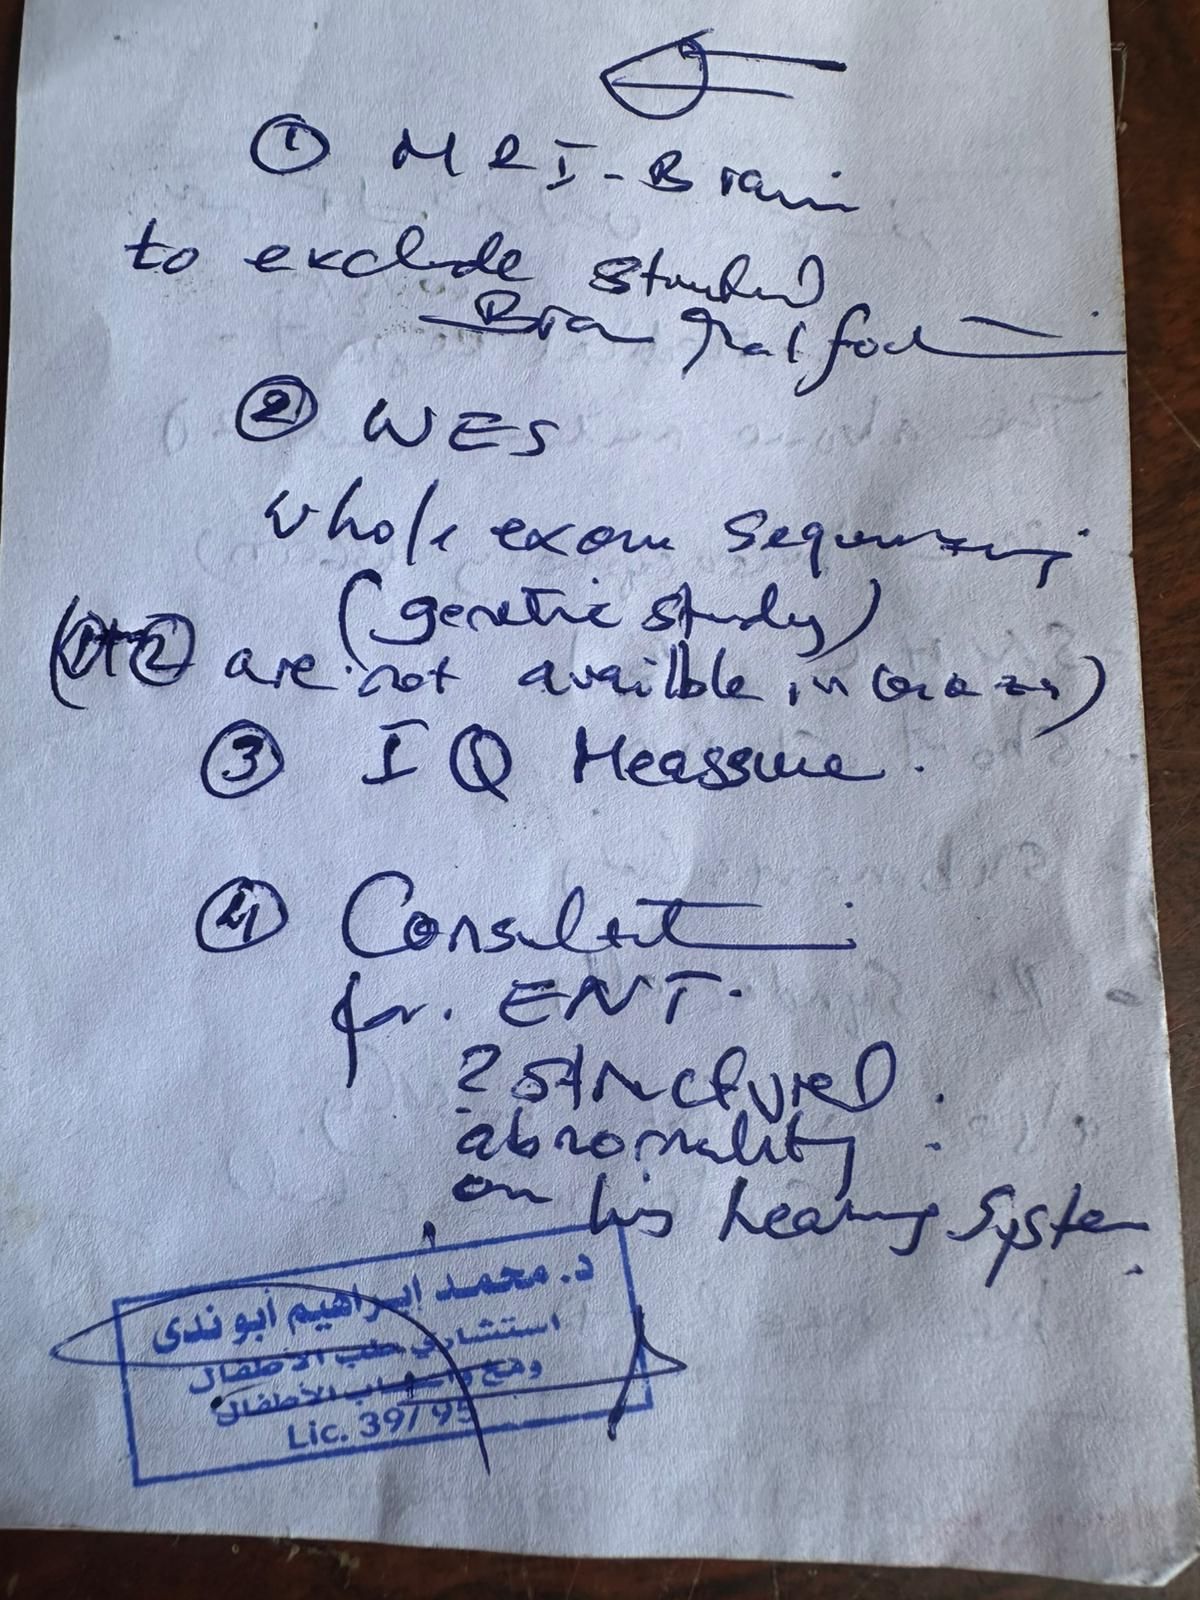 ① MRI-Brain
to exclude structural
Brain malformation
② WES
whole exom sequenzing
(genetic study)
(①+② are not availble in Gaza)
③ IQ Meassure.
④ Consultation
for. ENT.
? structural
abnormality
on his hearing System.
د. محمد إبراهيم أبو ندى
استشاري طب الأطفال
ومخ وأعصاب الأطفال
Lic. 39/95